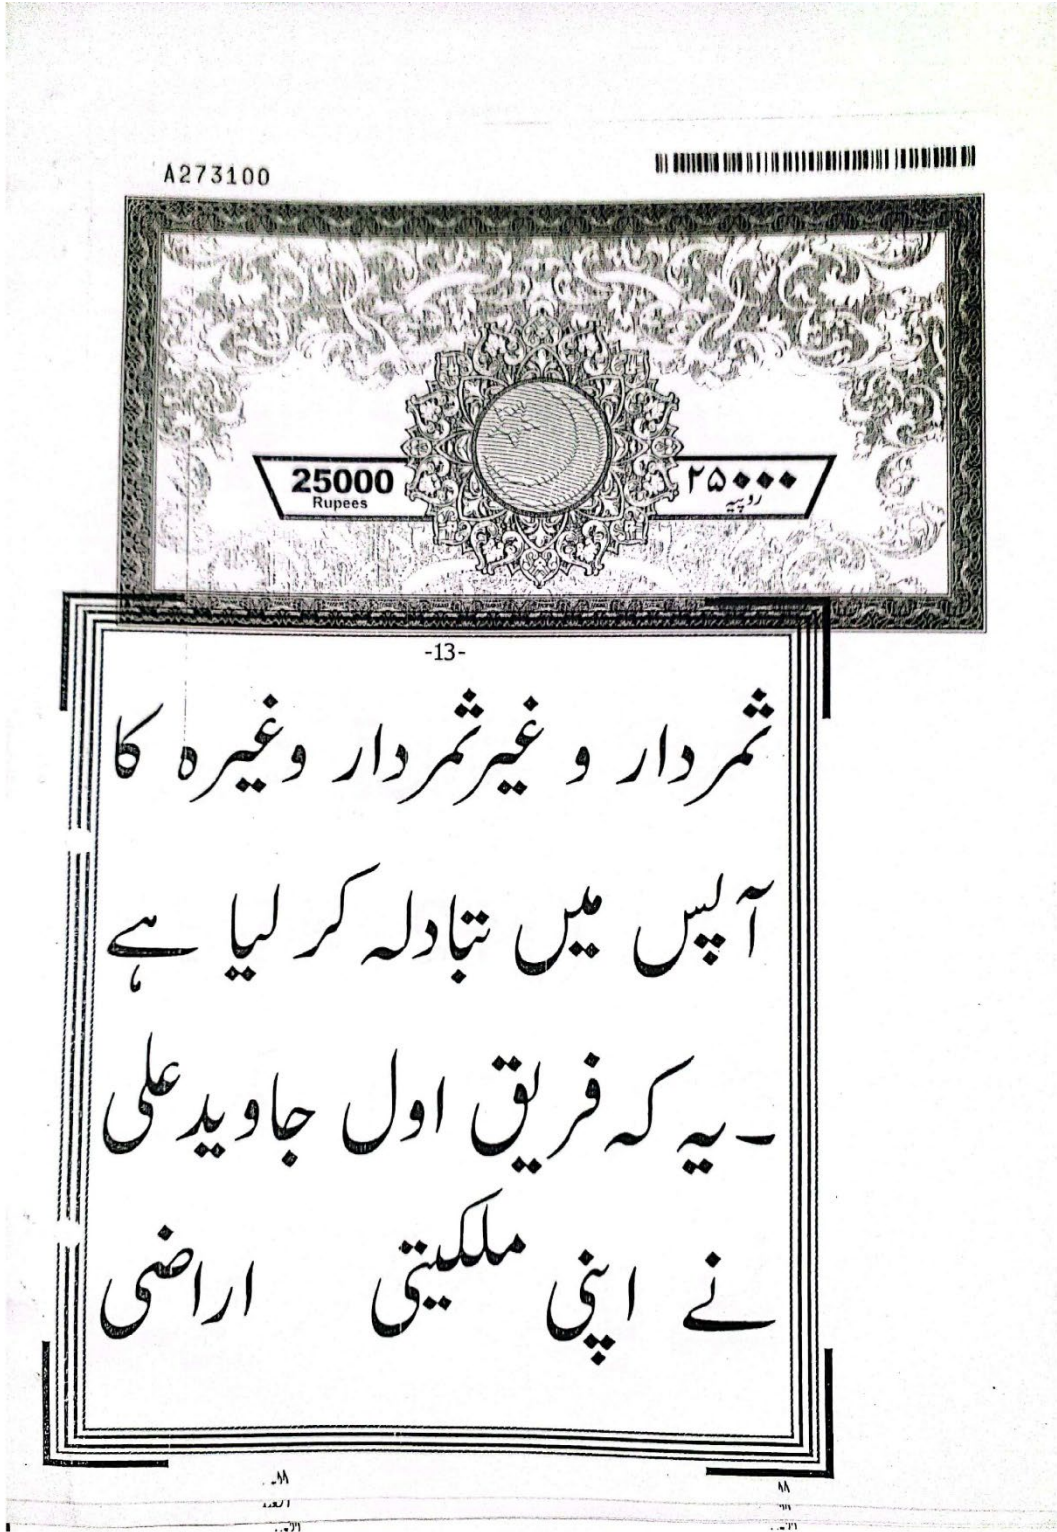 A273100
25000
Rupees
۲۵۰۰۰
روپیہ
-13-
ثمردار و غیرثمردار وغیرہ کا
آپس میں تبادلہ کر لیا ہے
۔یہ کہ فریق اول جاوید علی
نے اپنی ملکیتی اراضی